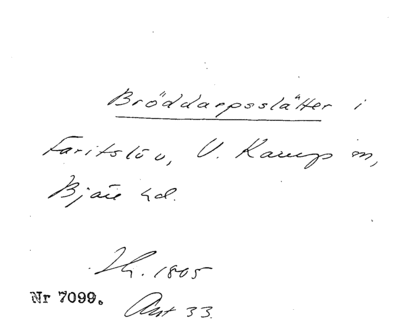 Bröddarpsslätter i
Faritslöv, V. Karup sn,
Bjäre hd.
Lh. 1805
Nr 7099.
Akt 33.